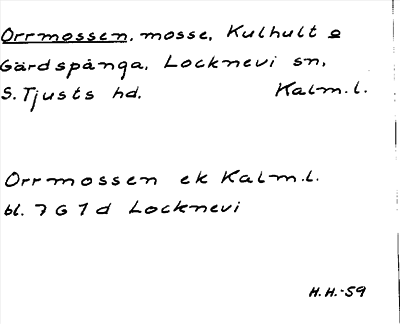 Orrmossen, mosse, Kulhult o
Gärdspånga, Locknevi sn,
S. Tjusts hd. Kalm.l.
Orrmossen ek Kalm.l.
bl. 7 G 7 d Locknevi
H.H.-59